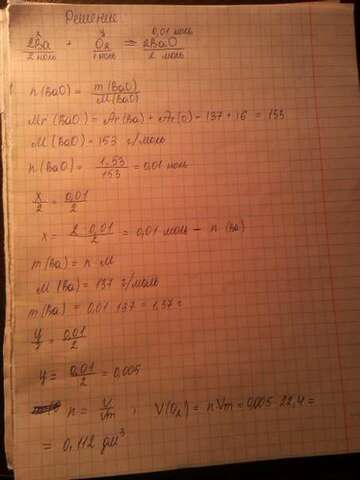 Решение
x y 0,01 моль
2Ba + O₂ = 2BaO
2 моль 1 моль 2 моль
n (BaO) = m (BaO) / M (BaO)
Mr (BaO) = Ar(Ba) + Ar(O) = 137 + 16 = 153
M (BaO) = 153 г/моль
n (BaO) = 1.53 / 153 = 0,01 моль
x/2 = 0,01/2
x = 2·0,01 / 2 = 0,01 моль – n (Ba)
m (Ba) = n · M
M (Ba) = 137 г/моль
m (Ba) = 0,01 · 137 = 1,37 г
y/1 = 0,01/2
y = 0,01/2 = 0,005
n = V/Vm ; V(O₂) = n Vm = 0,005 · 22,4 =
= 0,112 дм³